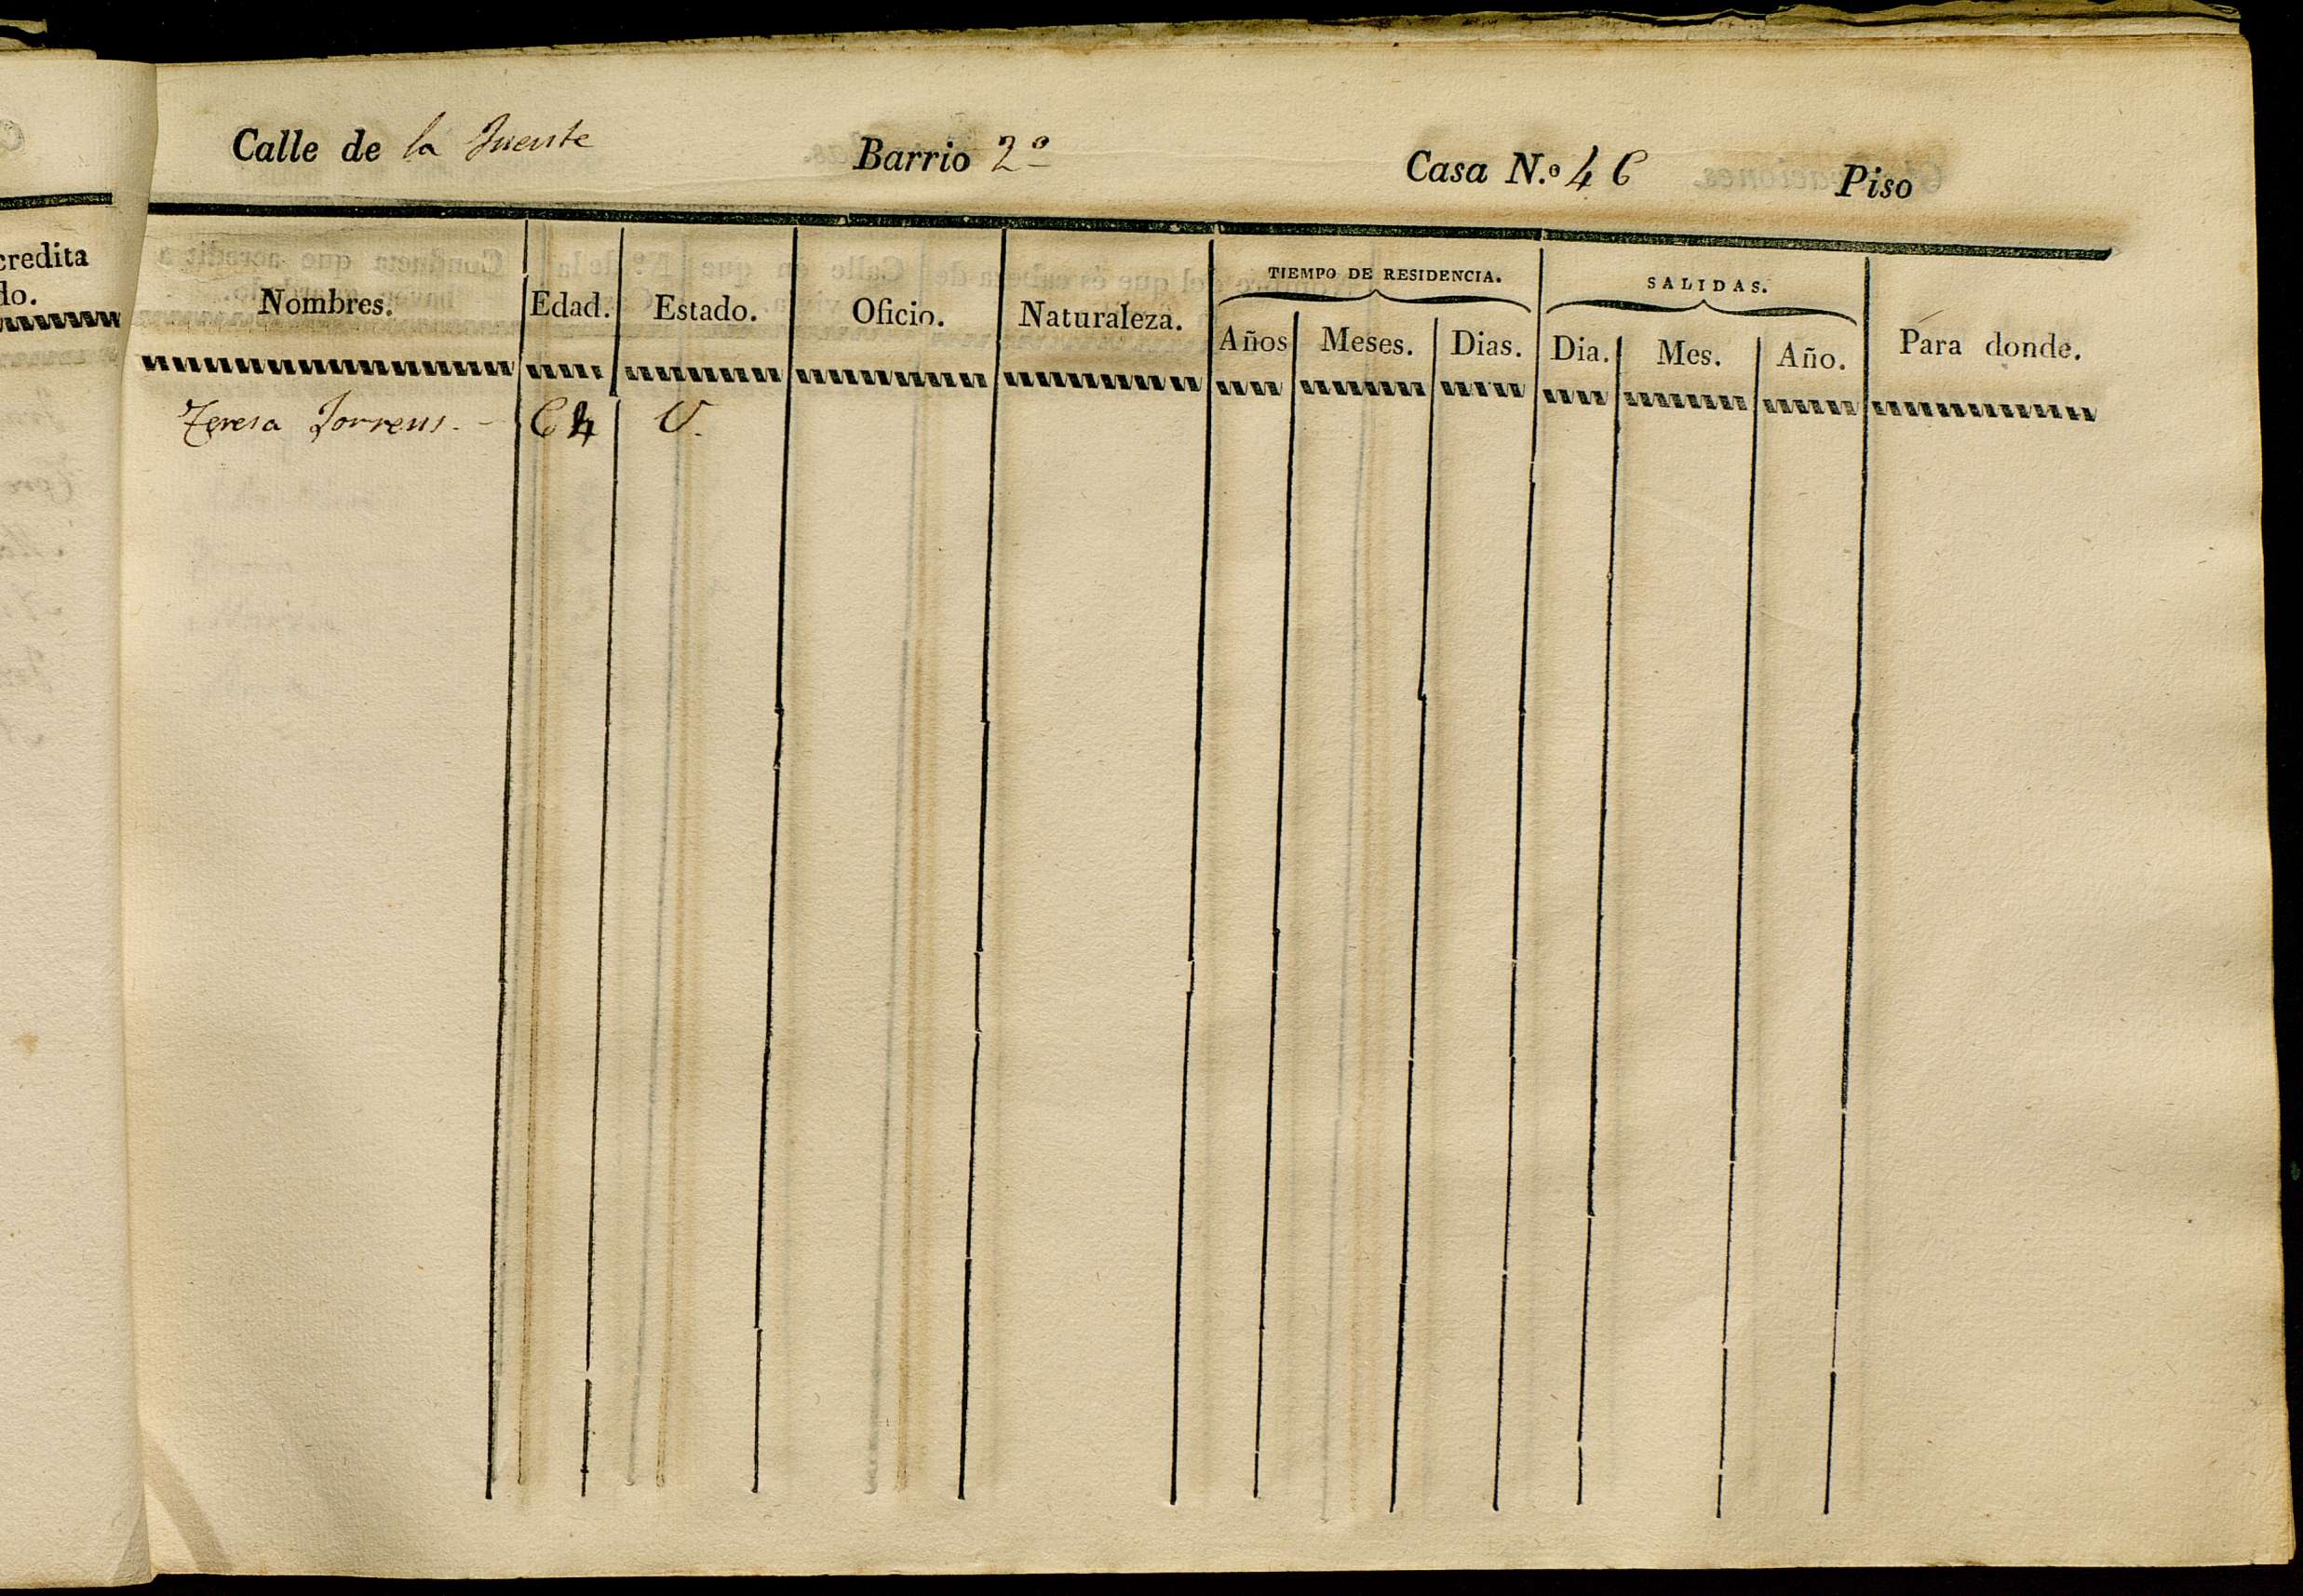 Calle de la Fuente Barrio 2º Casa N.º 46 Piso
credita
do.
Nombres. Edad. Estado. Oficio. Naturaleza. TIEMPO DE RESIDENCIA. SALIDAS. Para donde.
Años Meses. Dias. Dia. Mes. Año.
Teresa Torrens. - 64 V.